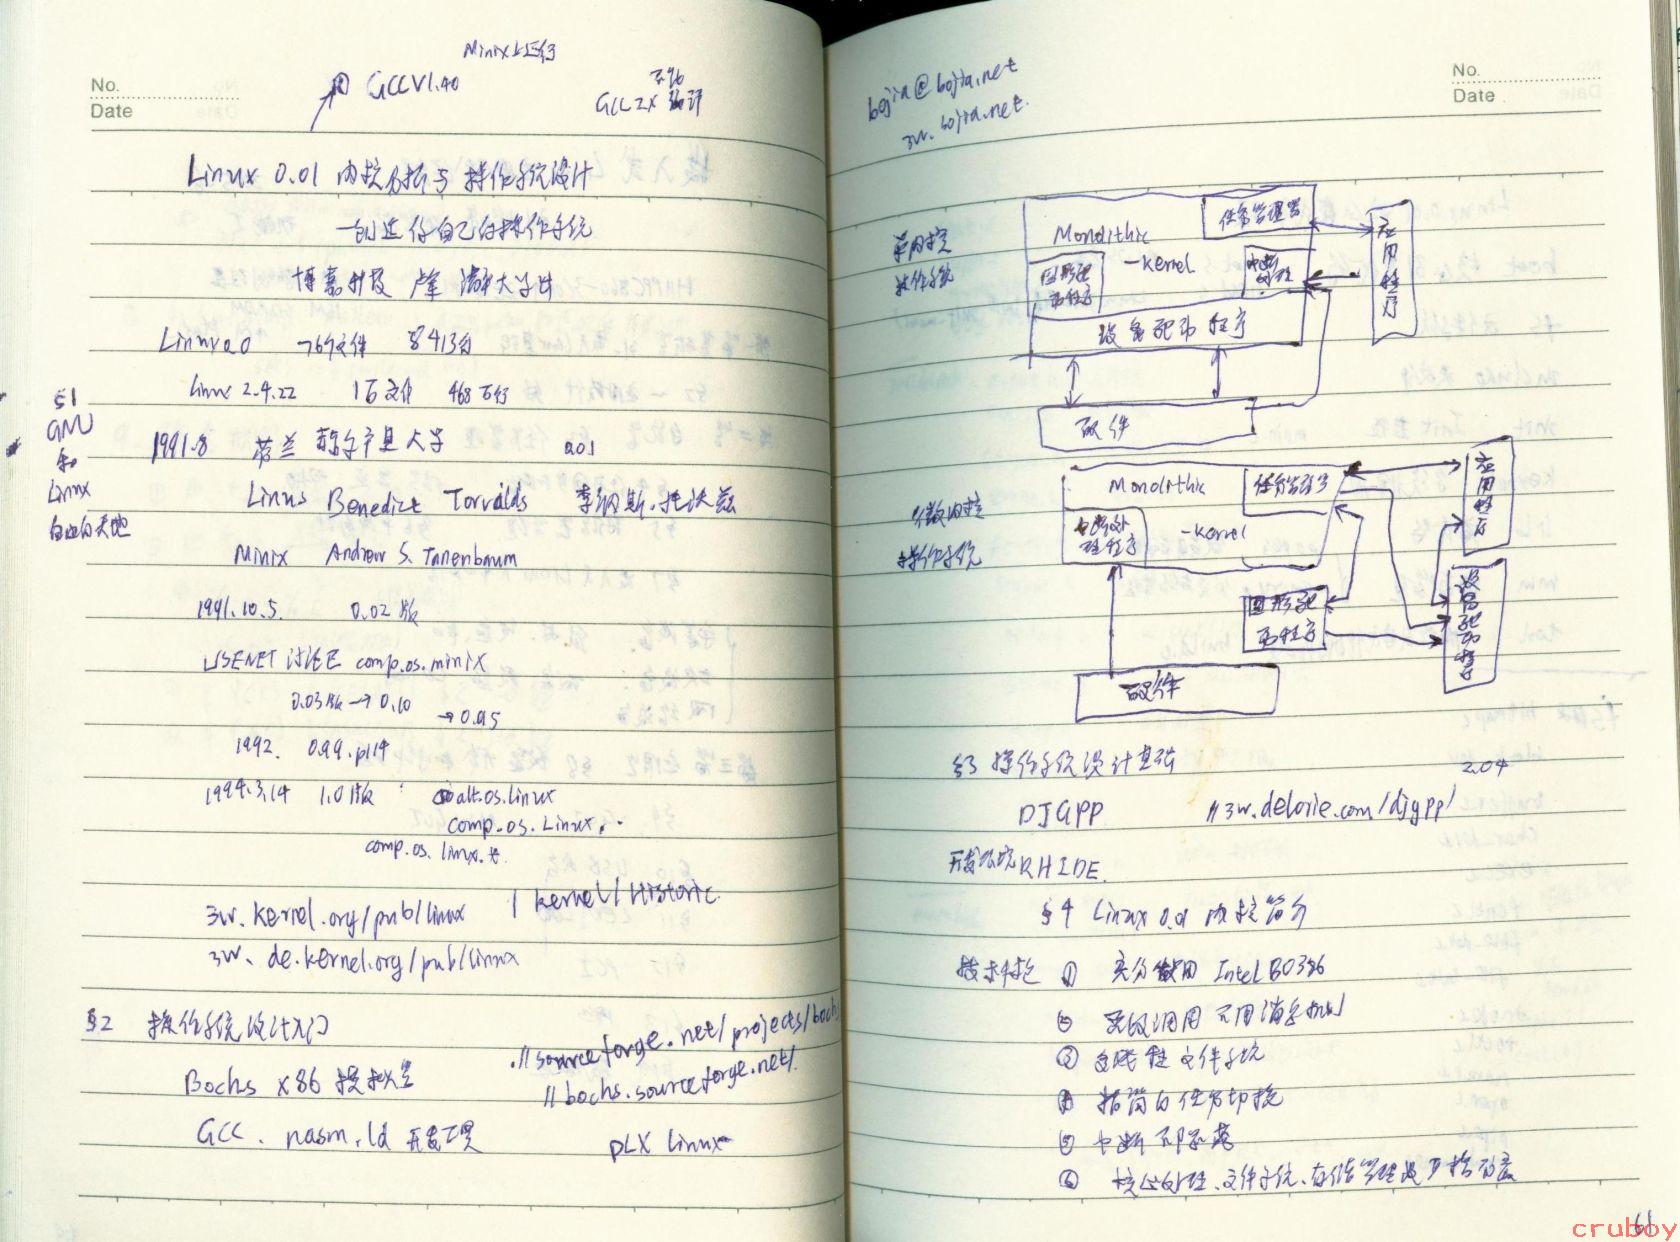 No.
Date
Minix上运行
GCC V1.40
GCC 2X 编译
Linux 0.01 内核分析与操作系统设计
—创造你自己的操作系统
Linux 0.0 76个文件 8413行
Linux 2.4.22 1万文件 468万行
§1
GNU
和
Linux
自由的天地
1991.8 芬兰 赫尔辛基大学 0.01
Linus Benedict Torvalds 李纳斯·托沃兹
Minix Andrew S. Tanenbaum
1991.10.5. 0.02版
USENET 讨论区 comp.os.minix
0.03版→0.10
→0.95
1992. 0.99.pl14
1994.3.14 1.0版 alt.os.linux
comp.os.Linux.
comp.os.linux.*
3w.kernel.org/pub/linux /kernel/Historic
3w.de.kernel.org/pub/linux
§2 操作系统设计入门
.//sourceforge.net/projects/bochs
Bochs x86 模拟器
//bochs.sourceforge.net/.
GCC、nasm、ld 开发工具
PLX Linux
No.
Date
bojia@bojia.net
3w.bojia.net.
单内核
操作系统
Monolithic
-kernel
任务管理器
图形驱
动程序
中断
处理
应用程序
设备驱动 程序
硬件
微内核
操作系统
Monolithic
-kernel
任务管理器
中断处
理程序
应用程序
图形驱
动程序
设备驱动程序
硬件
§3 操作系统设计基础
2.04
DJGPP //3w.delorie.com/djgpp/
开发环境 RHIDE.
§4 Linux 0.01 内核简介
技术特抡 ① 充分散用 Intel 80386
② 系统调用 不用消息机制
③ 多线程文件系统
④ 精简的任务切换
⑤ 中断不隐蔽
61
cruboy